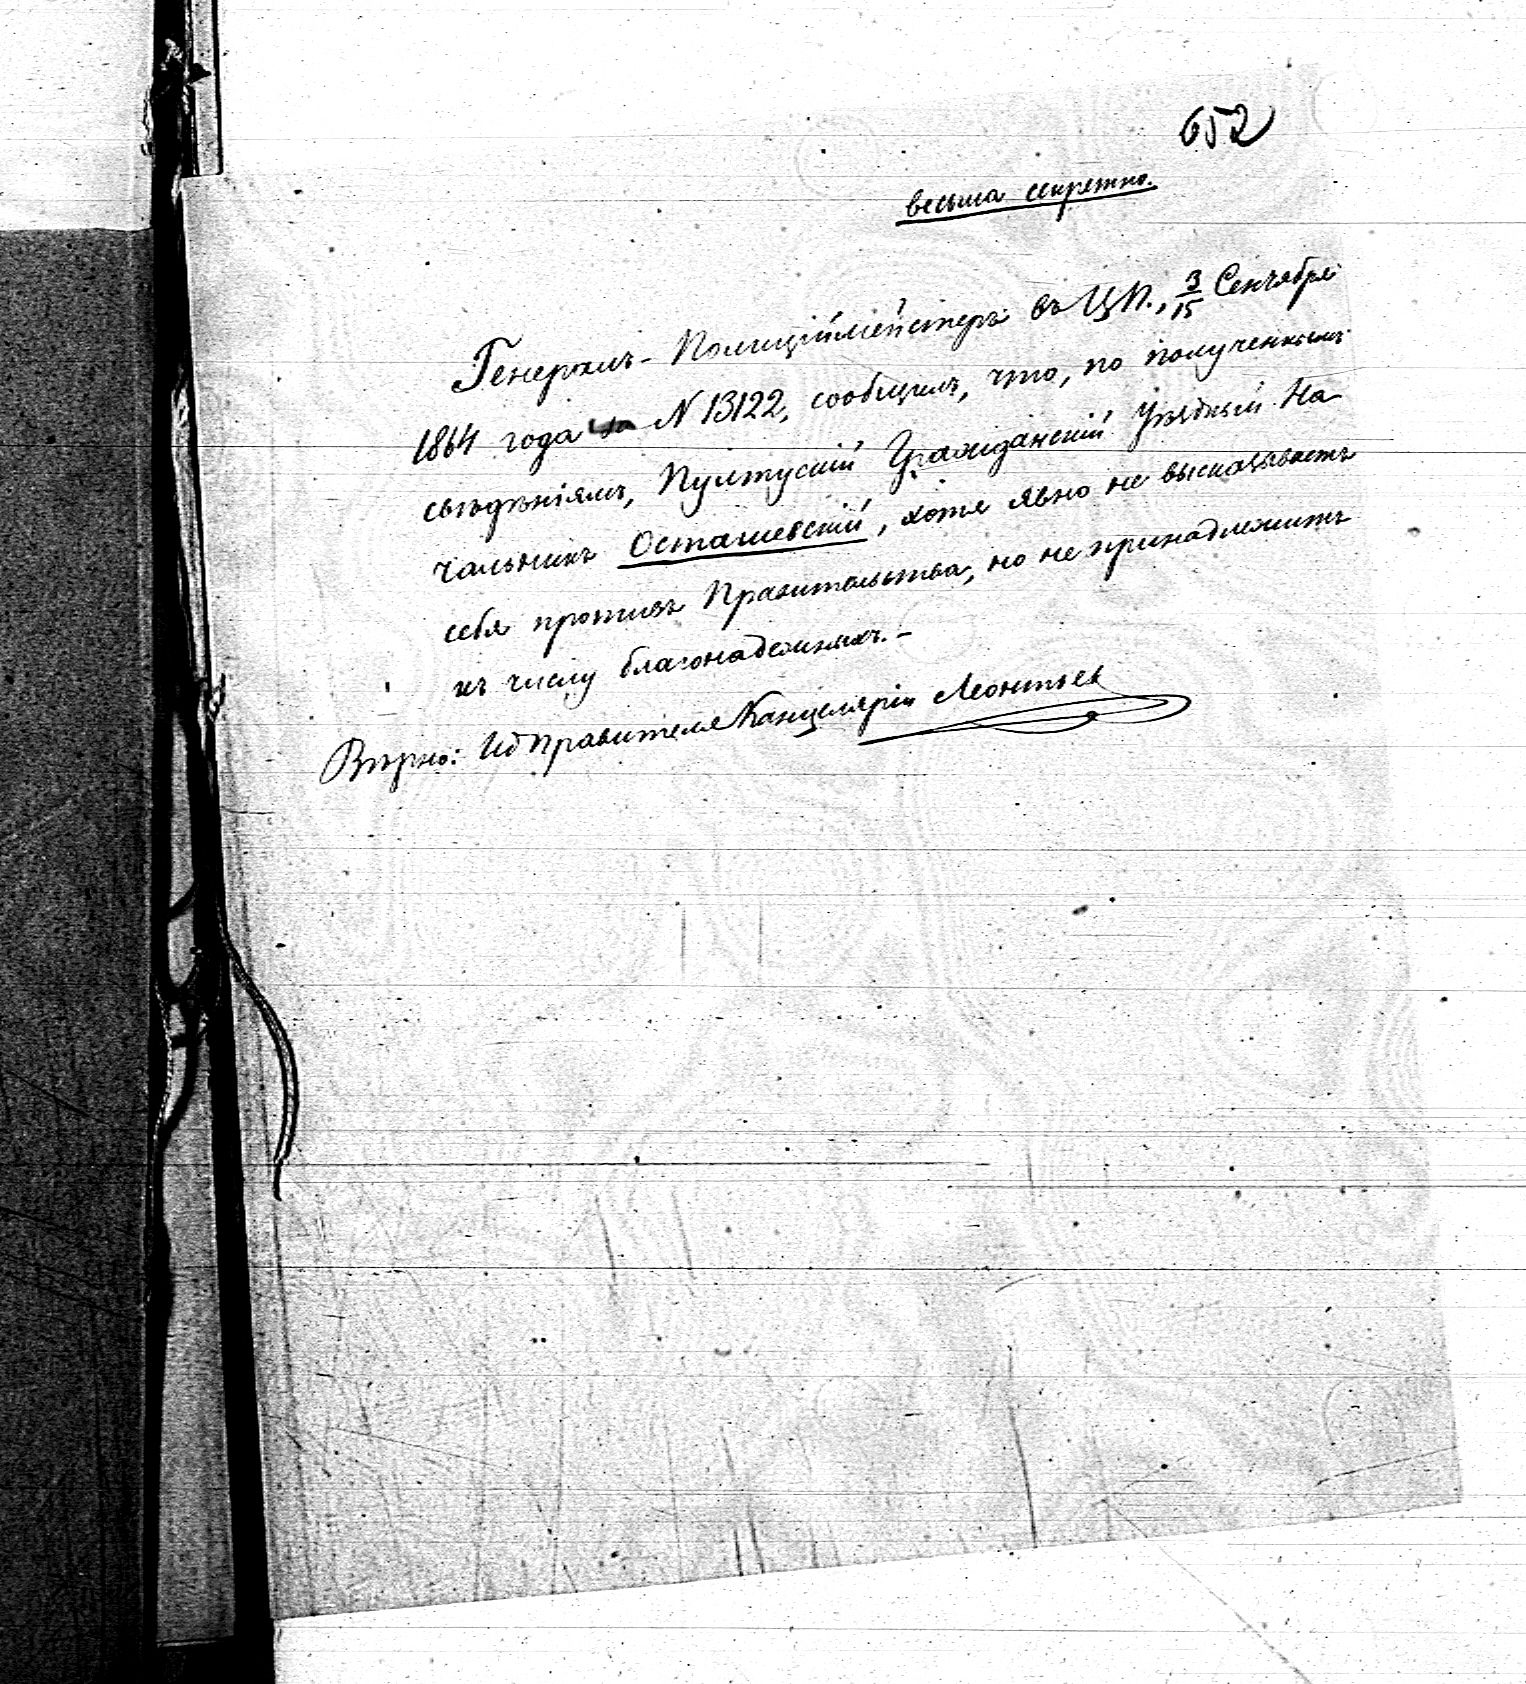 652
весьма секретно.
Генералъ-Полиціймейстеръ въ Ц.П., 3/15 Сентября
1864 года за N 13122, сообщилъ, что, по полученнымъ
свѣдѣніямъ, Пултускій Гражданскій Уѣздный На
чальникъ Осташевскій, хотя явно не высказываетъ
себя противъ Правительства, но не принадлежитъ
къ числу благонадежныхъ.-
Вѣрно: Ид Правителя Канцеляріи Леонтьев